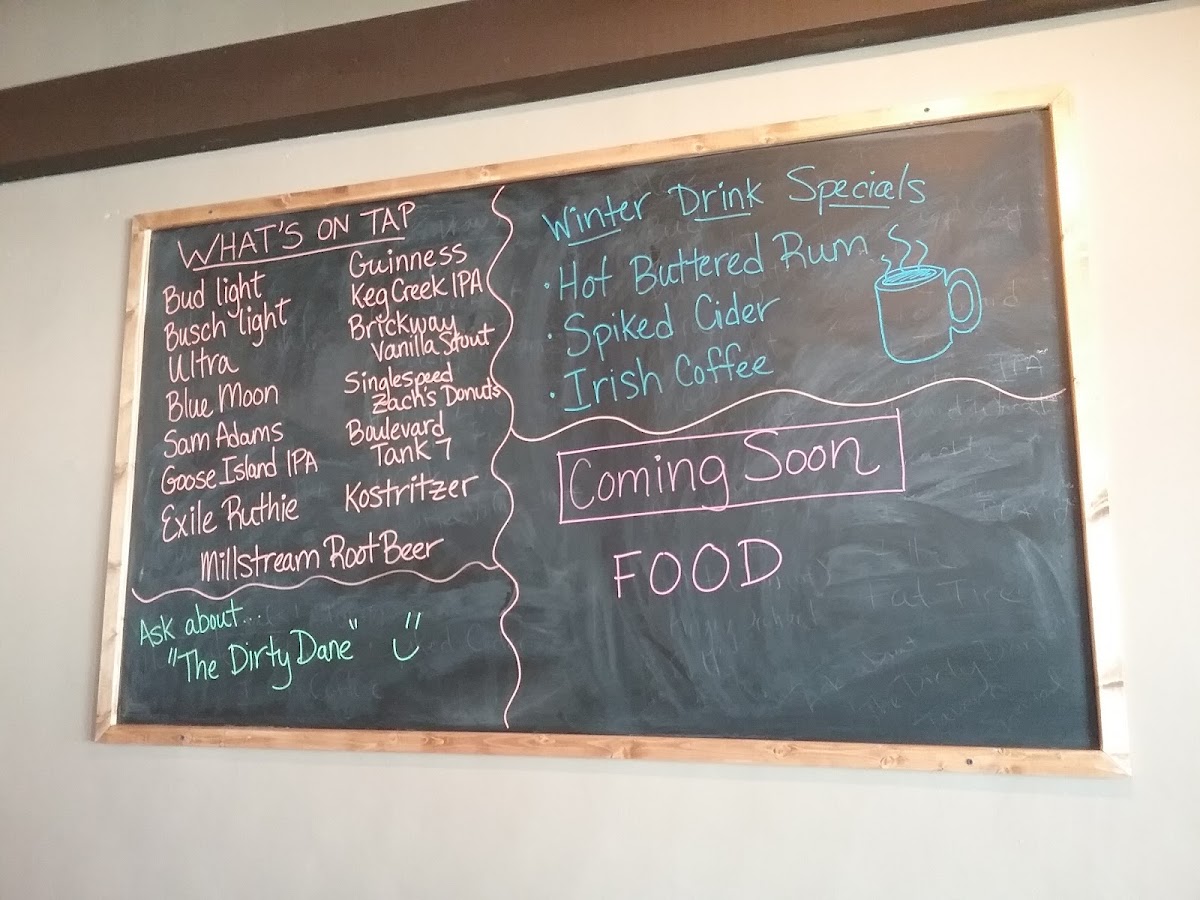 WHAT'S ON TAP
Bud light
Busch light
Ultra
Blue Moon
Sam Adams
Goose Island IPA
Exile Ruthie
Guinness
Keg Creek IPA
Brickway
Vanilla Stout
Singlespeed
Zach's Donuts
Boulevard
Tank 7
Kostritzer
Millstream Root Beer
Ask about...
"The Dirty Dane"
Winter Drink Specials
· Hot Buttered Rum
· Spiked Cider
· Irish Coffee
Coming Soon
FOOD
Fat Tire